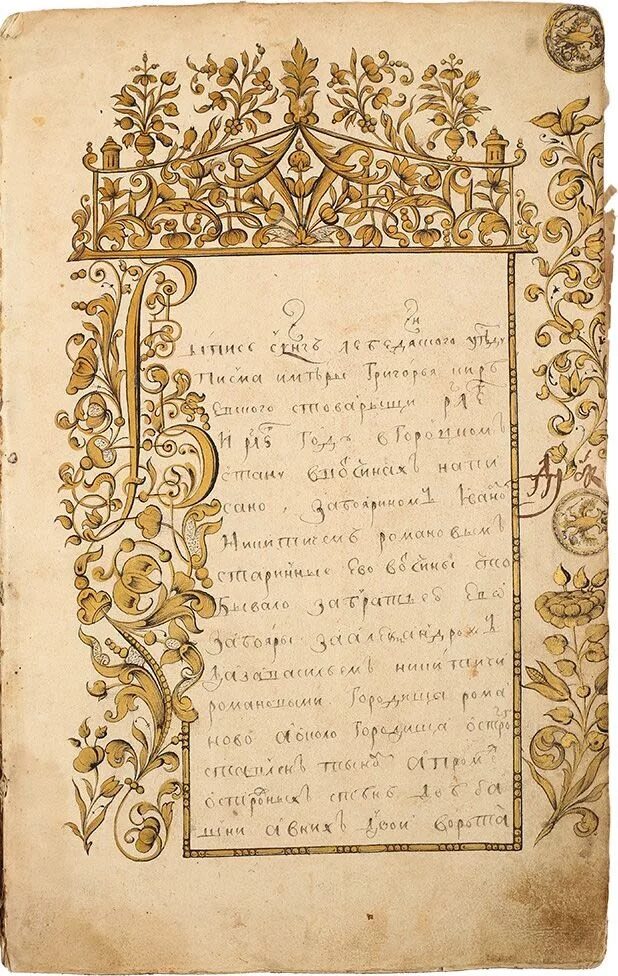 Выпись с книгъ лебедянского уѣзду
писма и мѣры Григорья Кирѣ
евского с товарыщи рл҃ѣ
и рл҃s годъ в Городцкомъ
стану в вотчинахъ напи
сано, за бояриномъ Иваномъ
Никитичемъ романовымъ
старинные ево вотчины что
бывало за братьев ево
за бояры за александромъ
да за васильемъ никитичи
романовыми Городища рома
ново а около Городища острогъ
ставленъ тыномъ а промеж
острожныхъ стенъ двѣ ба
шни а в них двои ворота